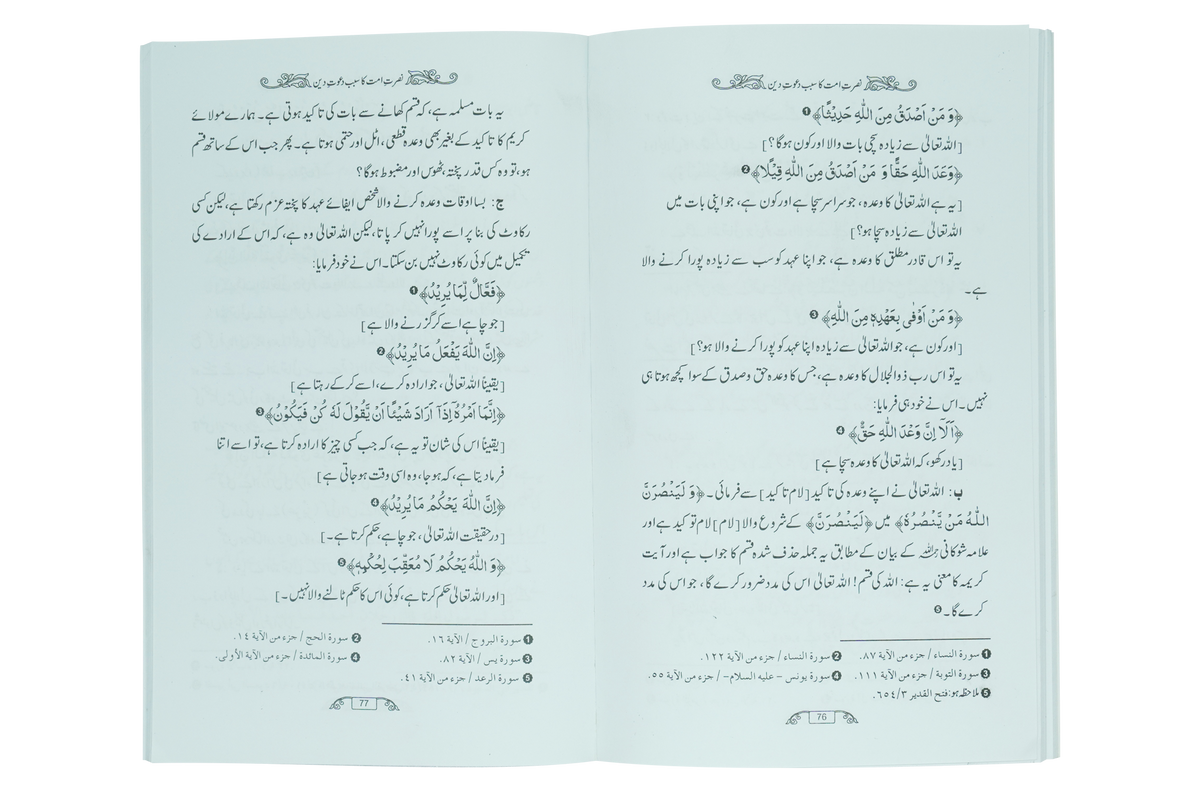 نصرتِ امت کا سبب دعوتِ دین
﴿وَ مَنْ اَصْدَقُ مِنَ اللّٰهِ حَدِيْثًا﴾ ❶
[اللہ تعالیٰ سے زیادہ سچی بات والا اور کون ہوگا؟]
﴿وَعْدَ اللّٰهِ حَقًّا وَ مَنْ اَصْدَقُ مِنَ اللّٰهِ قِيْلًا﴾ ❷
[یہ ہے اللہ تعالیٰ کا وعدہ، جو سراسر سچا ہے اور کون ہے، جو اپنی بات میں
اللہ تعالیٰ سے زیادہ سچا ہو؟]
یہ تو اس قادرِ مطلق کا وعدہ ہے، جو اپنا عہد کو سب سے زیادہ پورا کرنے والا
ہے۔
﴿وَ مَنْ اَوْفٰى بِعَهْدِهٖ مِنَ اللّٰهِ﴾ ❸
[اور کون ہے، جو اللہ تعالیٰ سے زیادہ اپنا عہد کو پورا کرنے والا ہو؟]
یہ تو اس رب ذوالجلال کا وعدہ ہے، جس کا وعدہ حق و صدق کے سوا کچھ ہوتا ہی
نہیں۔ اس نے خود ہی فرمایا:
﴿اَلَآ اِنَّ وَعْدَ اللّٰهِ حَقٌّ﴾ ❹
[یاد رکھو، کہ اللہ تعالیٰ کا وعدہ سچا ہے]
ب: اللہ تعالیٰ نے اپنے وعدہ کی تاکید [لام تاکید] سے فرمائی۔ ﴿وَ لَيَنْصُرَنَّ
اللّٰهُ مَنْ يَّنْصُرُهٗ﴾ میں ﴿لَيَنْصُرَنَّ﴾ کے شروع والا [لام] لام توکید ہے اور
علامہ شوکانی رحمہ اللہ کے بیان کے مطابق یہ جملہ حذف شدہ قسم کا جواب ہے اور آیت
کریمہ کا معنی یہ ہے: اللہ کی قسم! اللہ تعالیٰ اس کی مدد ضرور کرے گا، جو اس کی مدد
کرے گا۔ ❺
❶ سورة النساء / جزء من الآية ٨٧.
❷ سورة النساء / جزء من الآية ١٢٢.
❸ سورة التوبة / جزء من الآية ١١١.
❹ سورة يونس – عليه السلام– / جزء من الآية ٥٥.
❺ ملاحظہ ہو: فتح القدیر ٦٥٤/٣.
76
نصرتِ امت کا سبب دعوتِ دین
یہ بات مسلمہ ہے، کہ قسم کھانے سے بات کی تاکید ہوتی ہے۔ ہمارے مولائے
کریم کا تاکید کے بغیر بھی وعدہ قطعی، اٹل اور حتمی ہوتا ہے۔ پھر جب اس کے ساتھ قسم
ہو، تو وہ کس قدر پختہ، ٹھوس اور مضبوط ہوگا؟
ج: بسا اوقات وعدہ کرنے والا شخص ایفائے عہد کا پختہ عزم رکھتا ہے، لیکن کسی
رکاوٹ کی بنا پر اسے پورا نہیں کر پاتا، لیکن اللہ تعالیٰ وہ ہے، کہ اس کے ارادے کی
تکمیل میں کوئی رکاوٹ نہیں بن سکتا۔ اس نے خود فرمایا:
﴿فَعَّالٌ لِّمَا يُرِيْدُ﴾ ❶
[جو چاہے اسے کر گزرنے والا ہے]
﴿اِنَّ اللّٰهَ يَفْعَلُ مَا يُرِيْدُ﴾ ❷
[یقیناً اللہ تعالیٰ، جو ارادہ کرے، اسے کر کے رہتا ہے]
﴿اِنَّمَآ اَمْرُهٗٓ اِذَآ اَرَادَ شَيْئًا اَنْ يَّقُوْلَ لَهٗ كُنْ فَيَكُوْنُ﴾ ❸
[یقیناً اس کی شان تو یہ ہے، کہ جب کسی چیز کا ارادہ کرتا ہے، تو اسے اتنا
فرما دیتا ہے، کہ ہو جا، وہ اسی وقت ہو جاتی ہے]
﴿اِنَّ اللّٰهَ يَحْكُمُ مَا يُرِيْدُ﴾ ❹
[در حقیقت اللہ تعالیٰ، جو چاہے، حکم کرتا ہے۔]
﴿وَ اللّٰهُ يَحْكُمُ لَا مُعَقِّبَ لِحُكْمِهٖ﴾ ❺
[اور اللہ تعالیٰ حکم کرتا ہے، کوئی اس کا حکم ٹالنے والا نہیں۔]
❶ سورة البروج / الآية ١٦.
❷ سورة الحج / جزء من الآية ١٤.
❸ سورة يس / الآية ٨٢.
❹ سورة المائدة / جزء من الآية الأولى.
❺ سورة الرعد / جزء من الآية ٤١.
77